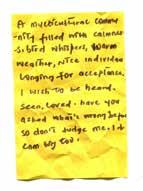 A multicultural commu
-nity filled with calmness
-sibted whispers, warm
weather, nice individua
longing for acceptance.
I wish to be heard.
seen, loved. have you
asked what's wrong
so don't Judge me. I
can big too.